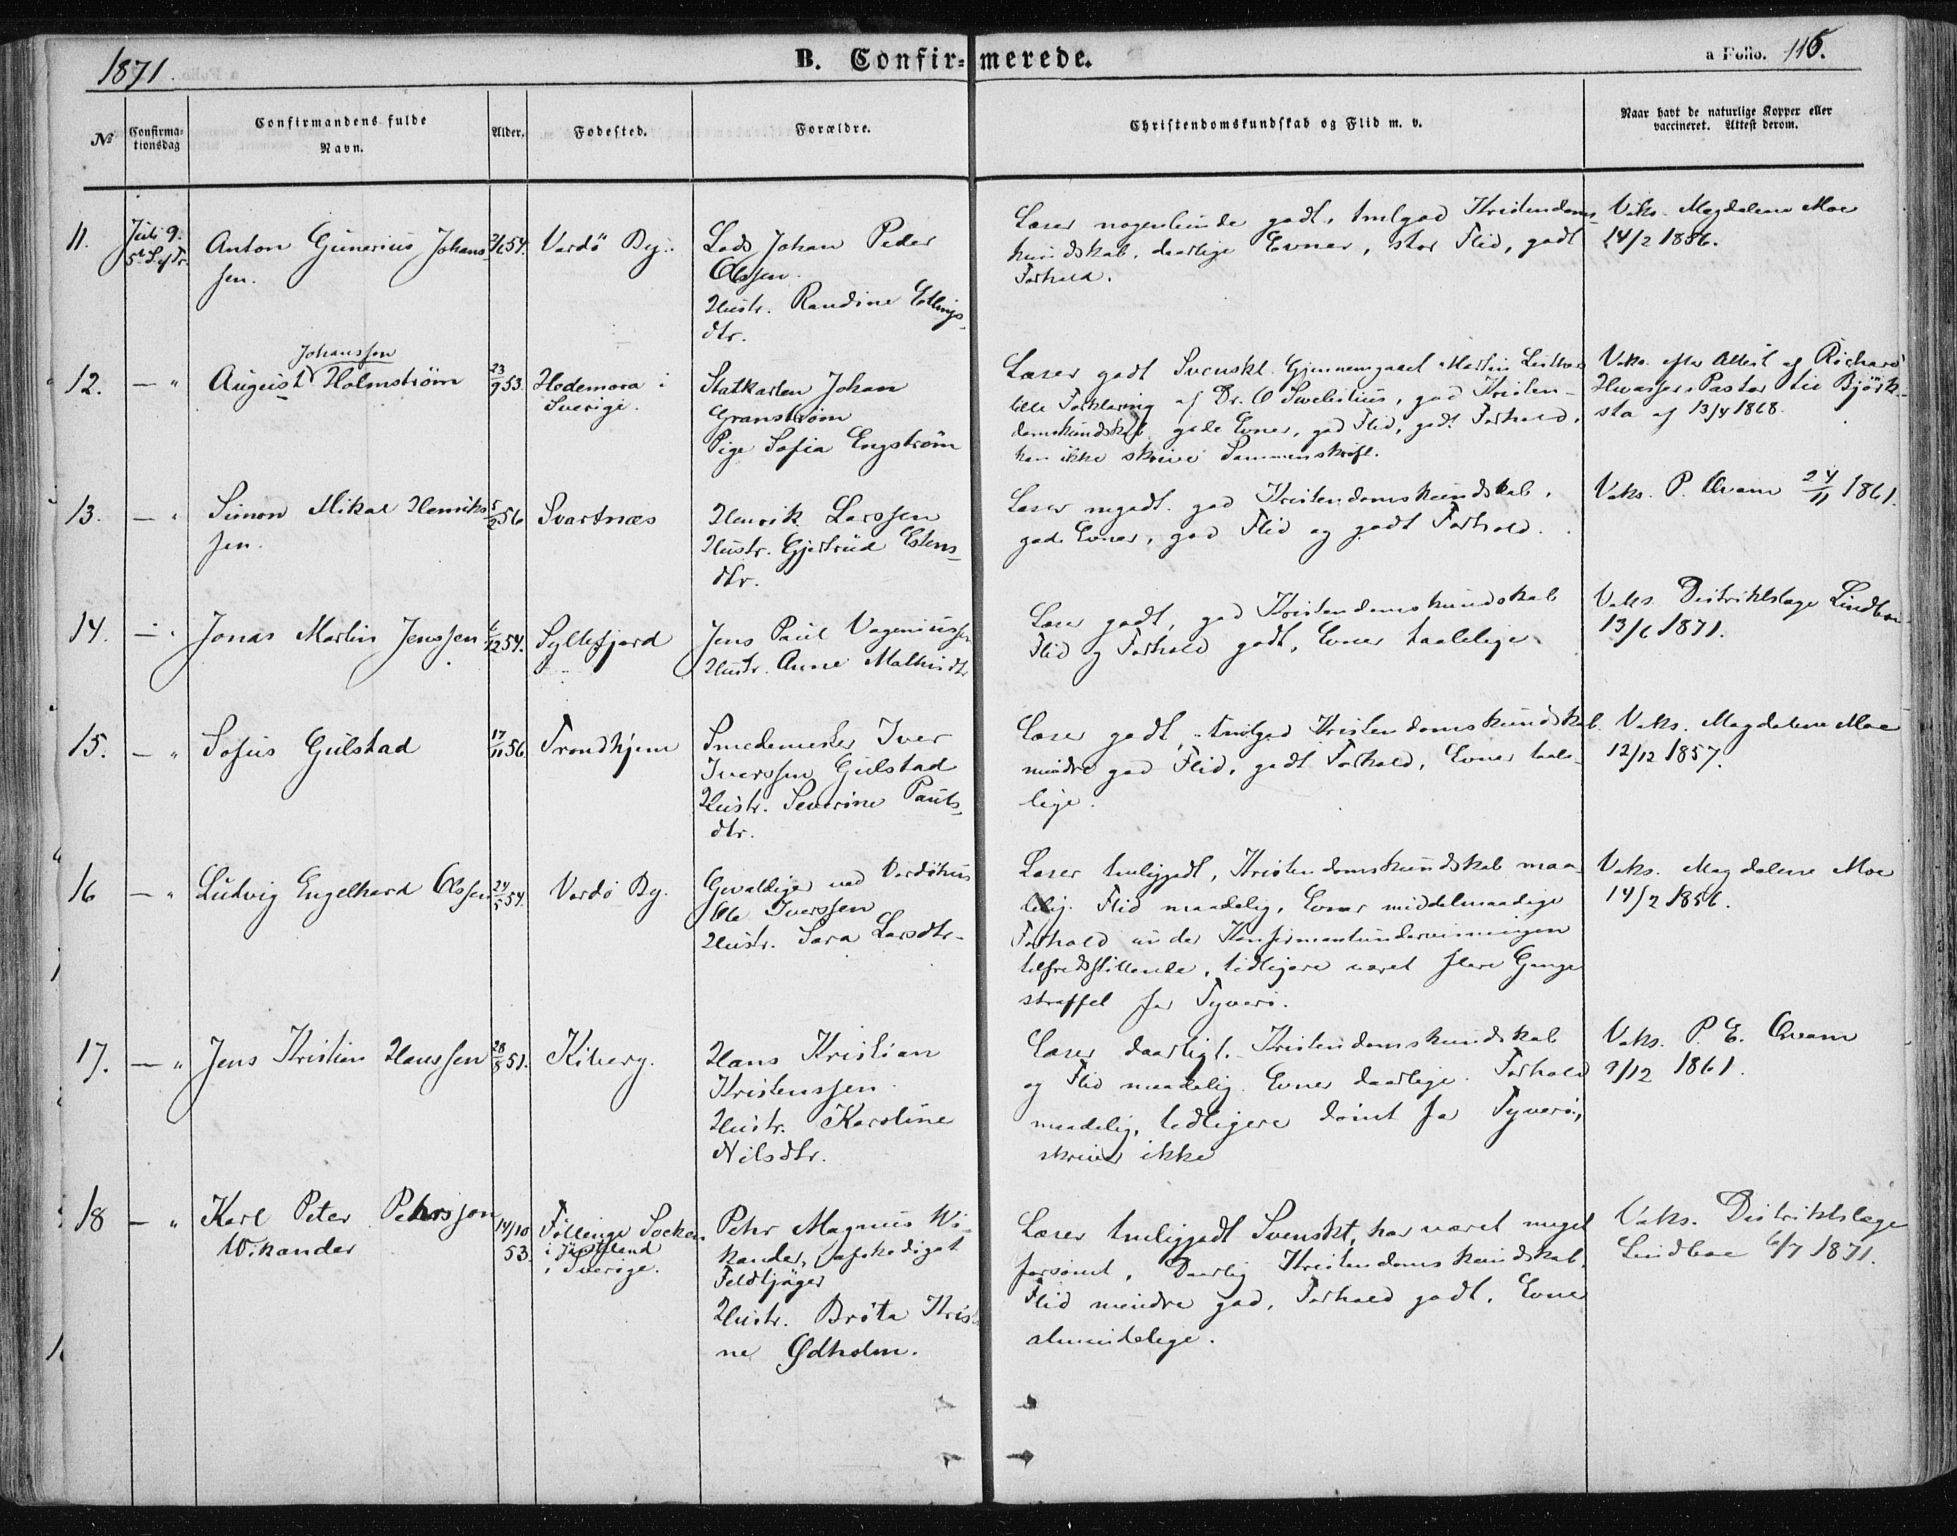 1871
B. Confir-merede.
a Folio. 116.
№
Confirma-
tionsdag
Confirmandens fulde
Navn.
Alder.
Fødested.
Forældre.
Christendomskundskab og Flid m. v.
Naar havt de naturlige Kopper eller
vaccineret. Attest derom.
11.
Juli 9.
5te S. ef Tr.
Anton Gunerius Johans-
sen.
54.
Vardö By.
Lods Johan Peder
Olssen.
Hustr. Randine Ellings-
dtr.
Læser nogenlunde godt, tmlgod Kristendoms-
kundskab, daarlige Evner, stor Flid, godt
Forhold.
Vaks. Magdalene Moe
14/2 1856.
12.
— "
Johanssen
August Holmström
23/9 53.
Hedemora i
Sverige.
Statkarlen Johan
Granström
Pige Sofia Engström
Læser godt Svenskt. Gjennemgaaet Martin Luthers
lille Forklaring af Dr. O Swebilius, god Kristen-
domskundskab, gode Evner, god Flid, godt Forhold,
kan ikke skrive Sammenskrift.
Vaks. efter Attest af Richard
Hwasser Pastor lie Björk-
sta af 13/4 1868.
13.
— "
Simon Mikal Henriks-
sen.
5/2 56
Svartnæs
Henrik Larssen
Hustr. Gjertrud Estens-
dtr.
Læser mgodt. god Kristendomskundskab,
gode Evner, god Flid og godt Forhold.
Vaks. P. Qvam 24/11 1861.
14.
— "
Jonas Martin Jenssen
/12 54.
Syltefjord
Jens Paul Vageniussen
Hustr. Anne Mathisdtr
Læser godt, god Kristendomskundskab
Flid og Forhold godt, Evner taalelige.
Vaks. Distriktslæge Lindboe
13/6 1871.
15.
— "
Sofus Gulstad
17/11 56
Trondhjem
Smedemester Iver
Iverssen Gulstad
Hustr. Severine Pauls-
dtr.
Læser godt, tmlgod Kristendomskundskab
mindre god Flid, godt Forhold, Evner taale-
lige.
Vaks. Magdalene Moe
12/12 1857.
16
— "
Ludvig Engelhard Olssen
24/5 54.
Vardö By.
Gevaldiger ved Vardöhus
Ole Iverssen
Hustr. Sara Larsdtr.
Læser tmliggodt, Kristendomskundskab maa-
delig. Flid maadelig, Evner middelmaadige
Forhold under Konfirmantundervisningen
tilfredsstillende, tidligere været flere Gange
straffet for Tyveri.
Vaks. Magdalene Moe
14/2 1856.
17.
— "
Jens Kristian Hanssen
28/8 51.
Kiberg.
Hans Kristian
Kristenssen.
Hustr. Karoline
Nilsdtr.
Læser daarligt. Kristendomskundskab
og Flid maadelig. Evner daarlige. Forhold
maadelig, tidligere dömt for Tyveri,
skriver ikke
Vaks. P. E. Qvam
9/12 1861.
18
— "
Karl Peter Pehrsson
Wikander
14/10
53.
Föllinge Socken
i Jemtland
i Sverige.
Pehr Magnus Wi-
kander, afskediget
Feldtjäger
Hustr. Brita Kristi-
ne Ödholm.
Læser tmliggodt Svenskt, har været meget
forsömt, Daarlig Kristendomskundskab,
Flid mindre god, Forhold godt, Evner
almindelige.
Vaks. Distriktslæge
Lindboe 6/7 1871.